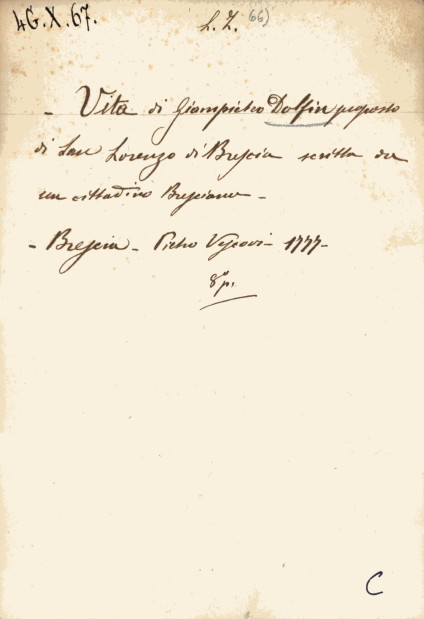 4G.X.67.
L. Z. 66)
- Vita di Giampietro Dolfin preposto
di San Lorenzo di Brescia scritta da
un cittadino Bresciano -
- Brescia - Pietro Vescovi - 1777 -
8º p.
C